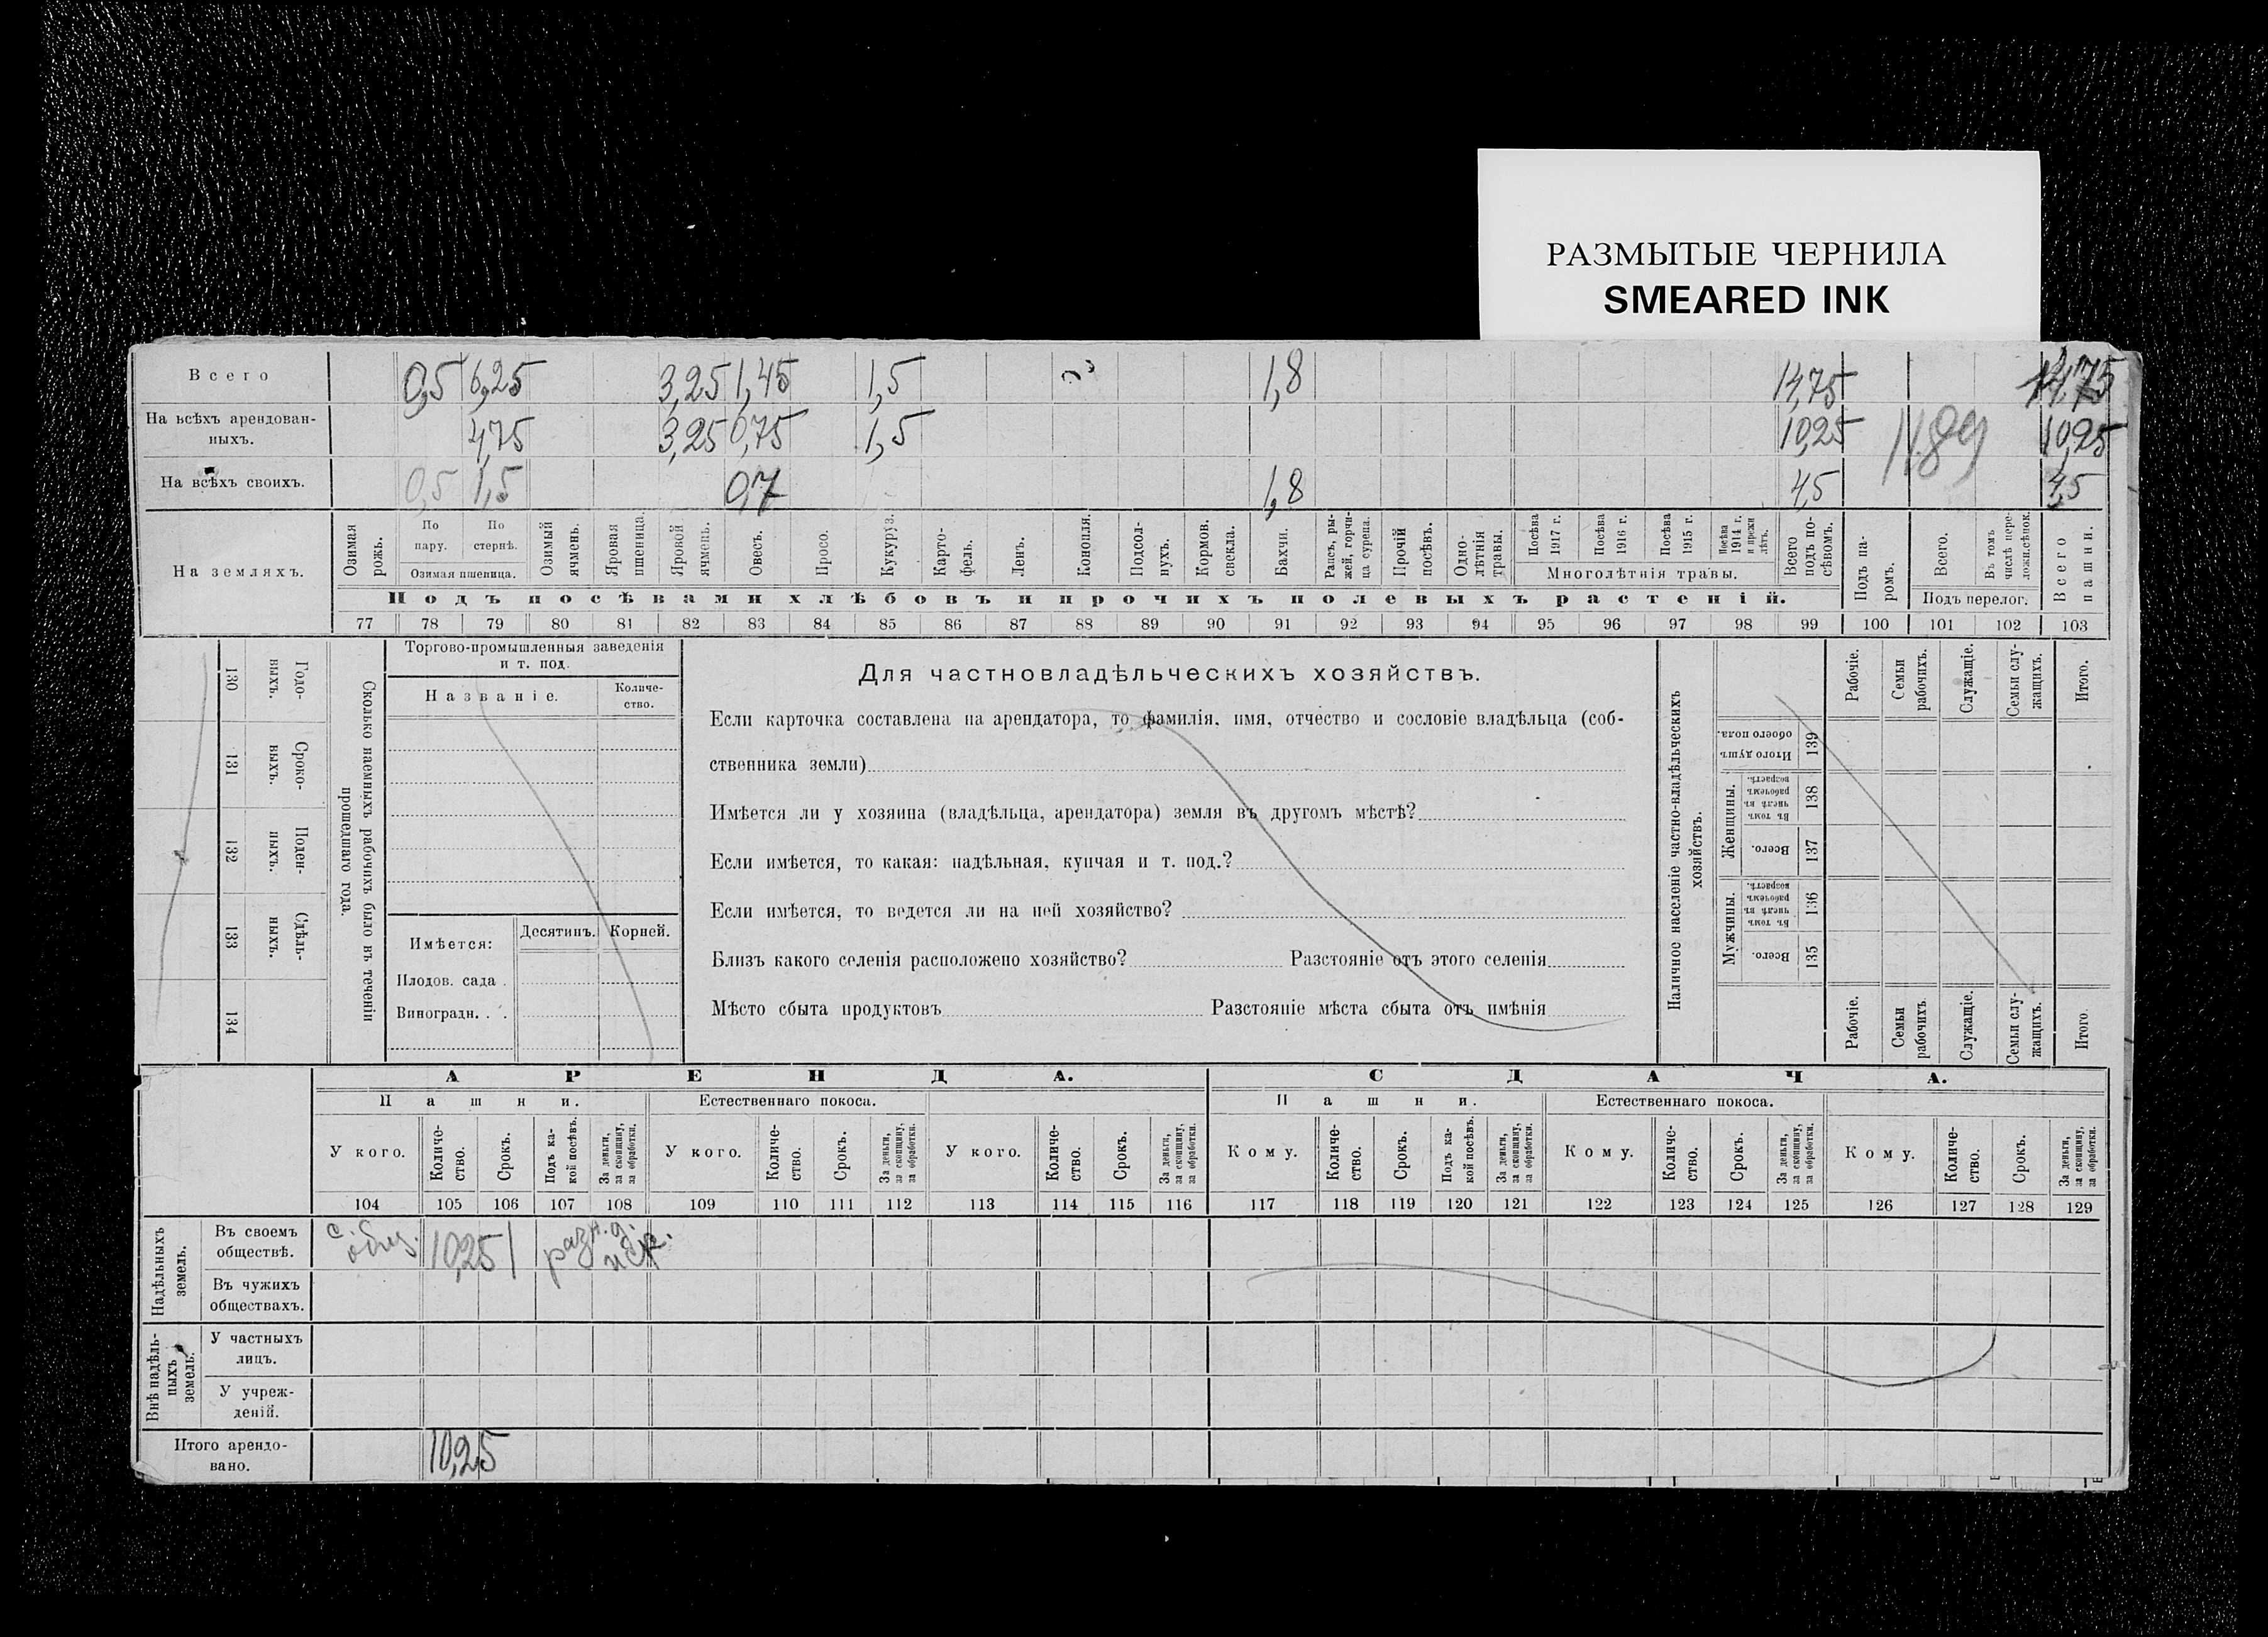 РАЗМЫТЫЕ ЧЕРНИЛА
SMEARED INK
Всего 0,5 6,25 3,25 1,45 1,5 1,8 14,75 14,75
На всѣхъ арендован-
ныхъ. 4,75 3,25 0,75 1,5 10,25 1189 10,25
На всѣхъ своихъ. 0,5 1,5 0,7 1,8 4,5 4,5
На земляхъ.
Озимая рожь.
По пару.
По стернѣ.
Озимая пшеница.
Озимый ячмень.
Яровая пшеница.
Яровой ячмень.
Овесъ.
Просо.
Кукуруз.
Карто-
фель.
Ленъ.
Конопля.
Подсол-
нухъ.
Кормов.
свекла.
Бахчи.
Рапсъ, ры-
жей, горчи-
ца сурепа.
Прочій посѣвъ.
Одно-
лѣтнія
травы.
Посѣва 1917 г.
Посѣва 1916 г.
Посѣва 1915 г.
Посѣва 1914 г. и прежн лѣтъ.
Многолѣтнія травы.
Всего подъ по-
сѣвомъ.
Подъ посѣвами хлѣбовъ и прочихъ полевыхъ растеній.
Подъ па-
ромъ.
Всего.
Въ томъ числѣ пере-
ложн.сѣнок.
Подъ перелог.
Всего пашни.
77 78 79 80 81 82 83 84 85 86 87 88 89 90 91 92 93 94 95 96 97 98 99 100 101 102 103
130 Годо-
выхъ.
131 Сроко-
выхъ.
132 Поден-
ныхъ.
133 Сдѣль-
ныхъ.
134
Сколько наемныхъ рабочихъ было въ теченіи
прошедшаго года.
Торгово-промышленныя заведенія
и т. под.
Названіе.
Количе-
ство.
Имѣется:
Десятинъ.
Корней.
Плодов. сада .
Виноградн. . .
Для частновладѣльческихъ хозяйствъ.
Если карточка составлена на арендатора, то фамилія, имя, отчество и сословіе владѣльца (соб-
ственника земли)
Имѣется ли у хозяина (владѣльца, арендатора) земля въ другомъ мѣстѣ?
Если имѣется, то какая: надѣльная, купчая и т. под.?
Если имѣется, то ведется ли на ней хозяйство?
Близъ какого селенія расположено хозяйство? Разстояніе отъ этого селенія
Мѣсто сбыта продуктовъ Разстояніе мѣста сбыта отъ имѣнія
Наличное населеніе частно-владѣльческихъ
хозяйствъ.
Рабочіе.
Семьи рабочихъ.
Служащіе.
Семьи слу-
жащихъ.
Итого.
Итого душъ обоего пола. 139
Женщины.
Въ томъ числѣ въ рабочемъ возрастѣ. 138
Всего. 137
Мужчины.
Въ томъ числѣ въ рабочемъ возрастѣ. 136
Всего. 135
Рабочіе.
Семьи рабочихъ
Служащіе.
Семьи слу-
жащихъ.
Итого.
АРЕНДА. СДАЧА.
Пашни. Естественнаго покоса. Пашни. Естественнаго покоса.
У кого. Количе-
ство. Срокъ. Подъ ка-
кой посѣвъ. За деньги, за скопщину, за обработки. У кого. Количе-
ство. Срокъ. За деньги, за скопщину, за обработки. У кого. Количе-
ство. Срокъ. За деньги, за скопщину, за обработки. Кому. Количе-
ство. Срокъ. Подъ ка-
кой посѣвъ. За деньги, за скопщину, за обработки. Кому. Количе-
ство. Срокъ. За деньги, за скопщину, за обработки. Кому. Количе-
ство. Срокъ. За деньги, за скопщину, за обработки.
104 105 106 107 108 109 110 111 112 113 114 115 116 117 118 119 120 121 122 123 124 125 126 127 128 129
Надѣльныхъ земель.
Въ своемъ
обществѣ. с. общ. 10,25 1 разн.
Въ чужихъ
обществахъ.
Внѣ надѣль-
ныхъ земель.
У частныхъ
лицъ.
У учреж-
деній.
Итого арендо-
вано. 10,25